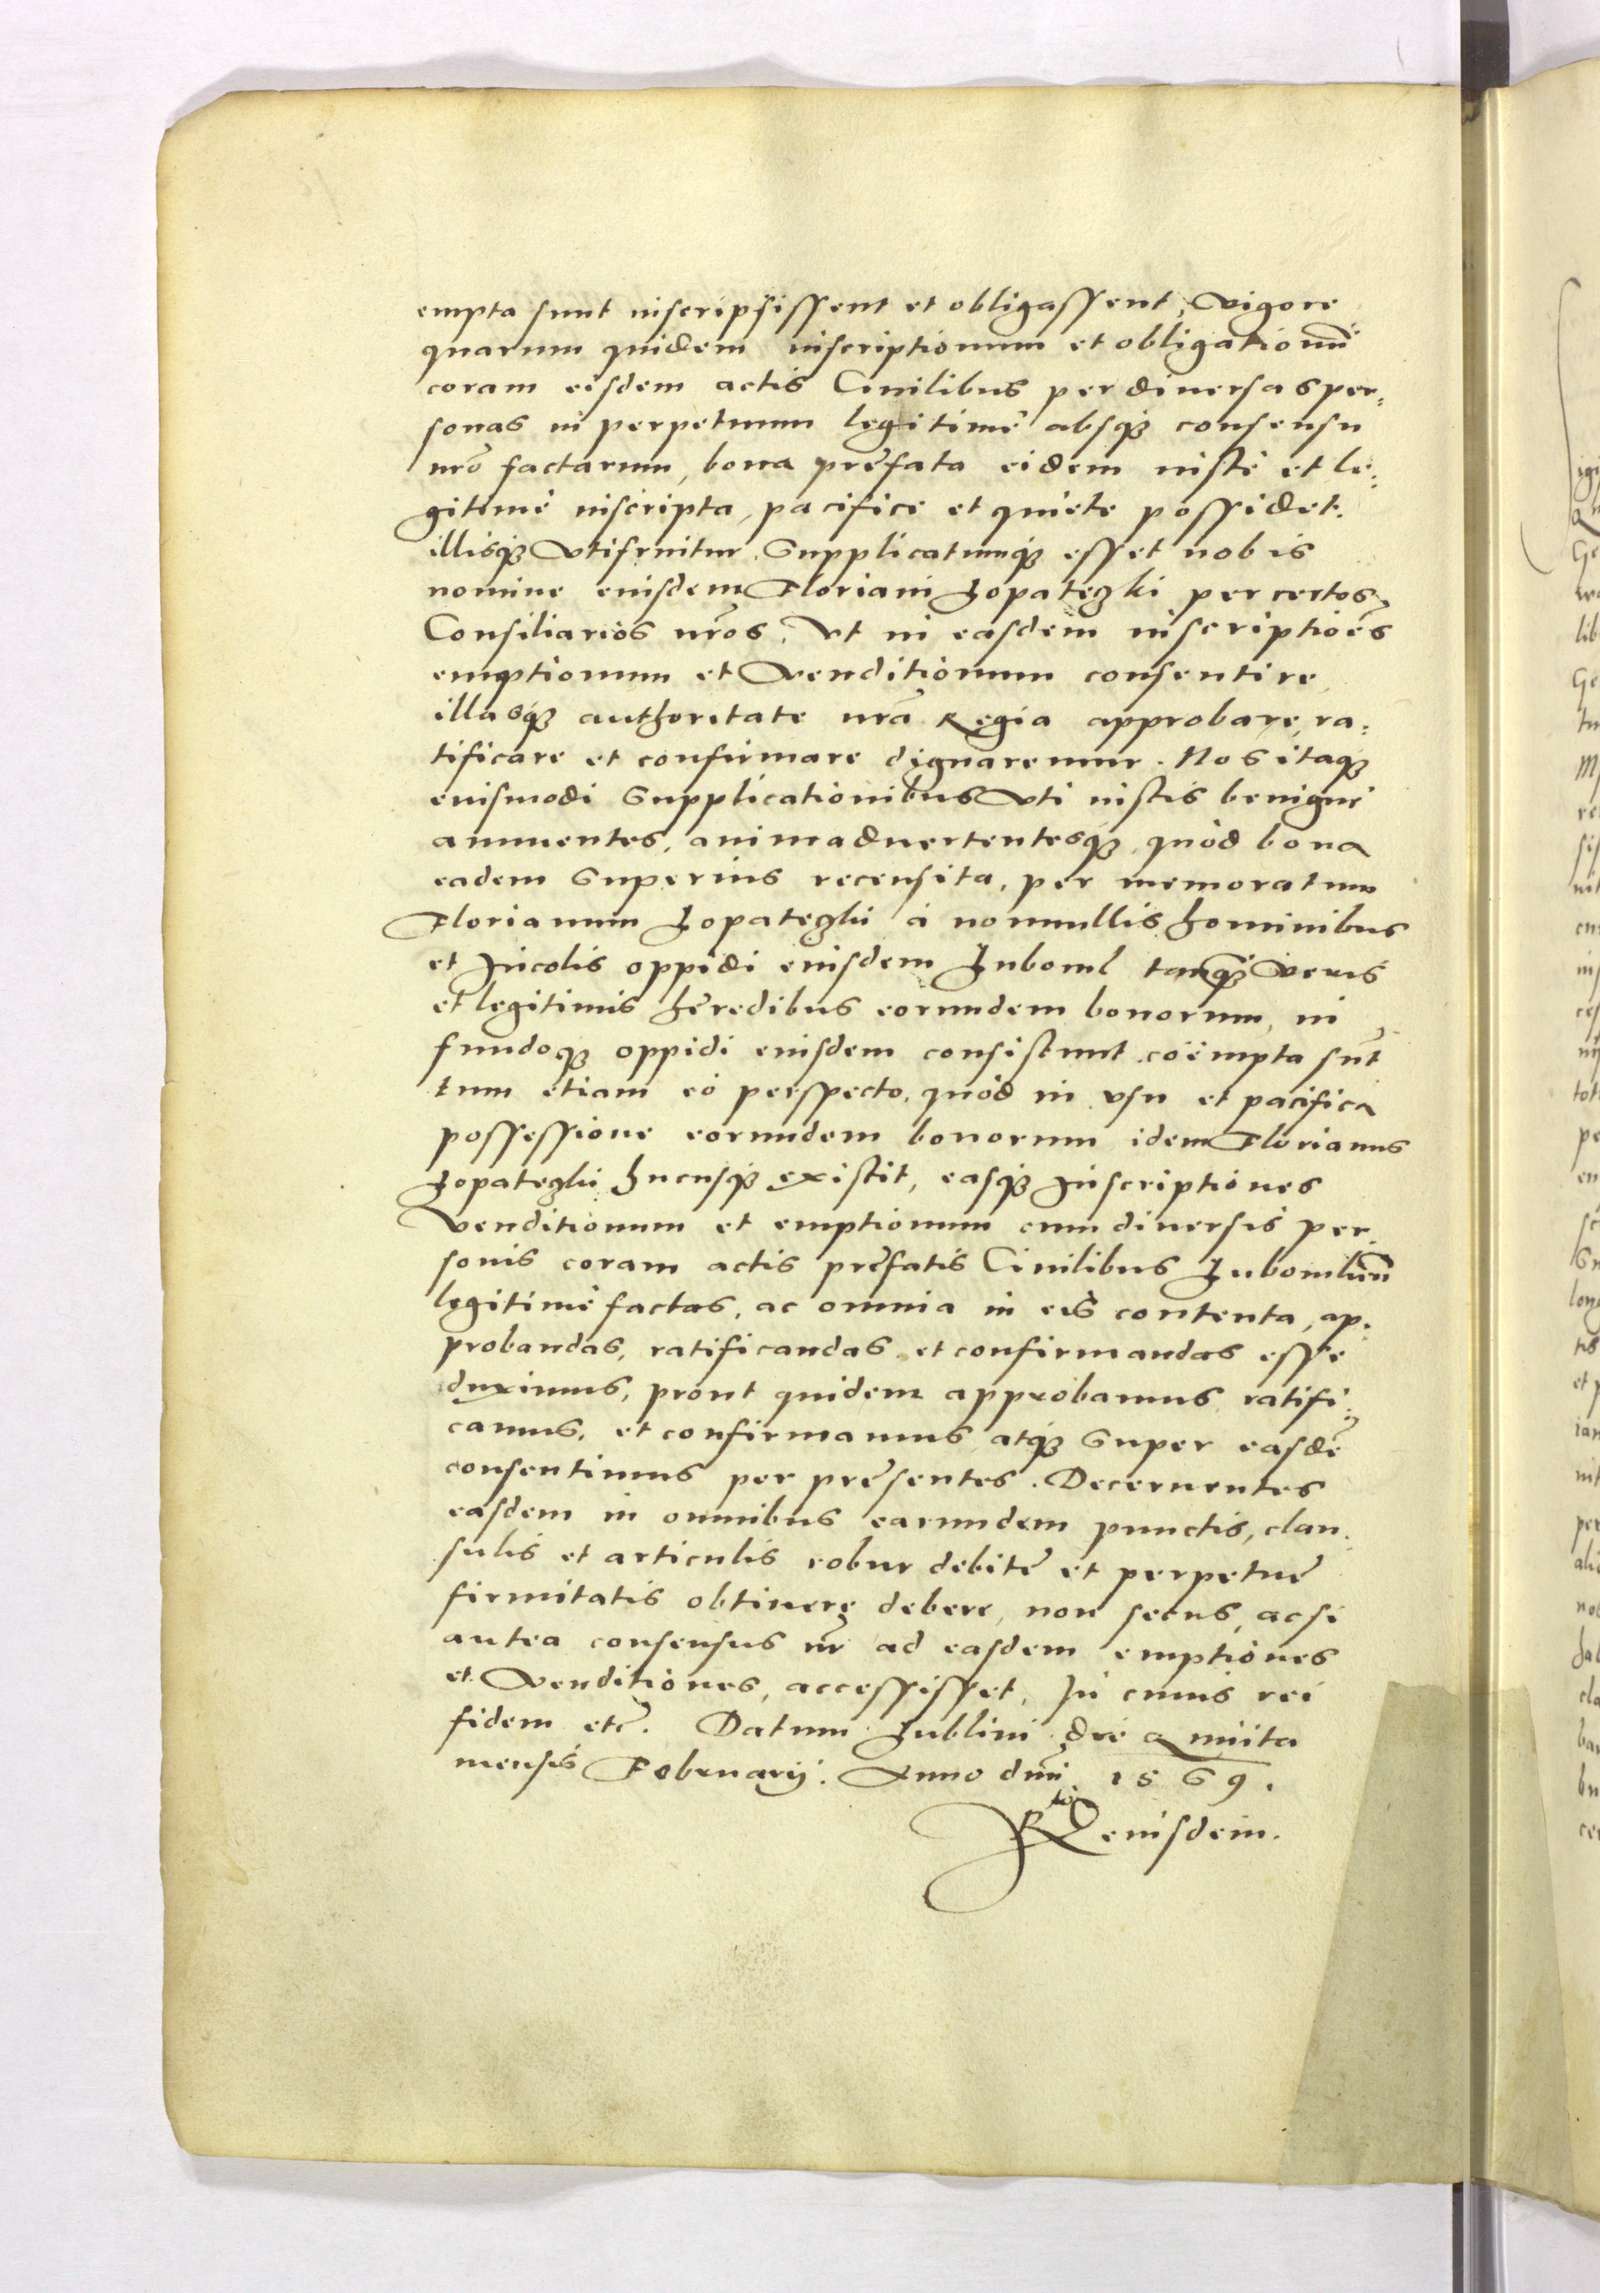 empta sunt inscripsissent et obligassent, vigore
quarum quidem inscriptionum et obligationū
coram eisdem actis Ciuilibus per diuersas per¬
sonas in perpetuum legitimè absq̨ consensu
nrõ factarum, bona prefata eidem iustè et le¬
gitimè inscripta, pacificè et quietè possidet.
illisq̨ vtifruitur, Supplicatumq̨ esset nobis
nomine eiusdem Floriani Lopateczki per certos
Consiliarios nrõs, vt in easdem inscriptioẽs
emptionum et venditionum consentire,
illasq̨ authoritate nrã Regia approbare, ra¬
tificare et confirmare dignaremur. Nos itaq̨
eiusmodi Supplicationibus vti iustis benignè
annuentes, animaduertentesq̨, quòd bona
eadem Superius recensita, per memoratum
Florianum Lopateczki à nonnullis hominibus
et Incolis oppidi eiusdem Luboml tanq̨ veris
et legitimis heredibus eorundem bonorum, in
fundoq̨ oppidi eiusdem consistunt coëmpta sũt
tum etiam eò perspecto, quòd in vsu et pacifica
possessione eorundem bonorum idem Florianus
Lopateczki hucusq̨ existit, easq̨ Inscriptiones
venditionum et emptionum cum diuersis per¬
sonis coram actis prefatis Ciuilibus
legitimè factas, ac omnia in eis contenta, ap¬
probandas, ratificandas et confirmandas esse
duximus, prout quidem approbamus ratifi¬
camus, et confirmamus, atq̨ Super easdẽ
consentimus per presentes. Decernentes
easdem in omnibus earundem punctis, clau¬
sulis et articulis robur debite et perpetue
firmitatis obtinere debere, non secus, ac si
antea consensus nr̃ ad easdem emptiones
et venditiones, accessisset, In cuius rei
fidem etc̃. Datum Lublini die Quinta
mensis Februarij. Anno dni. 1569.
Rᵗⁱᵒ eiusdem.